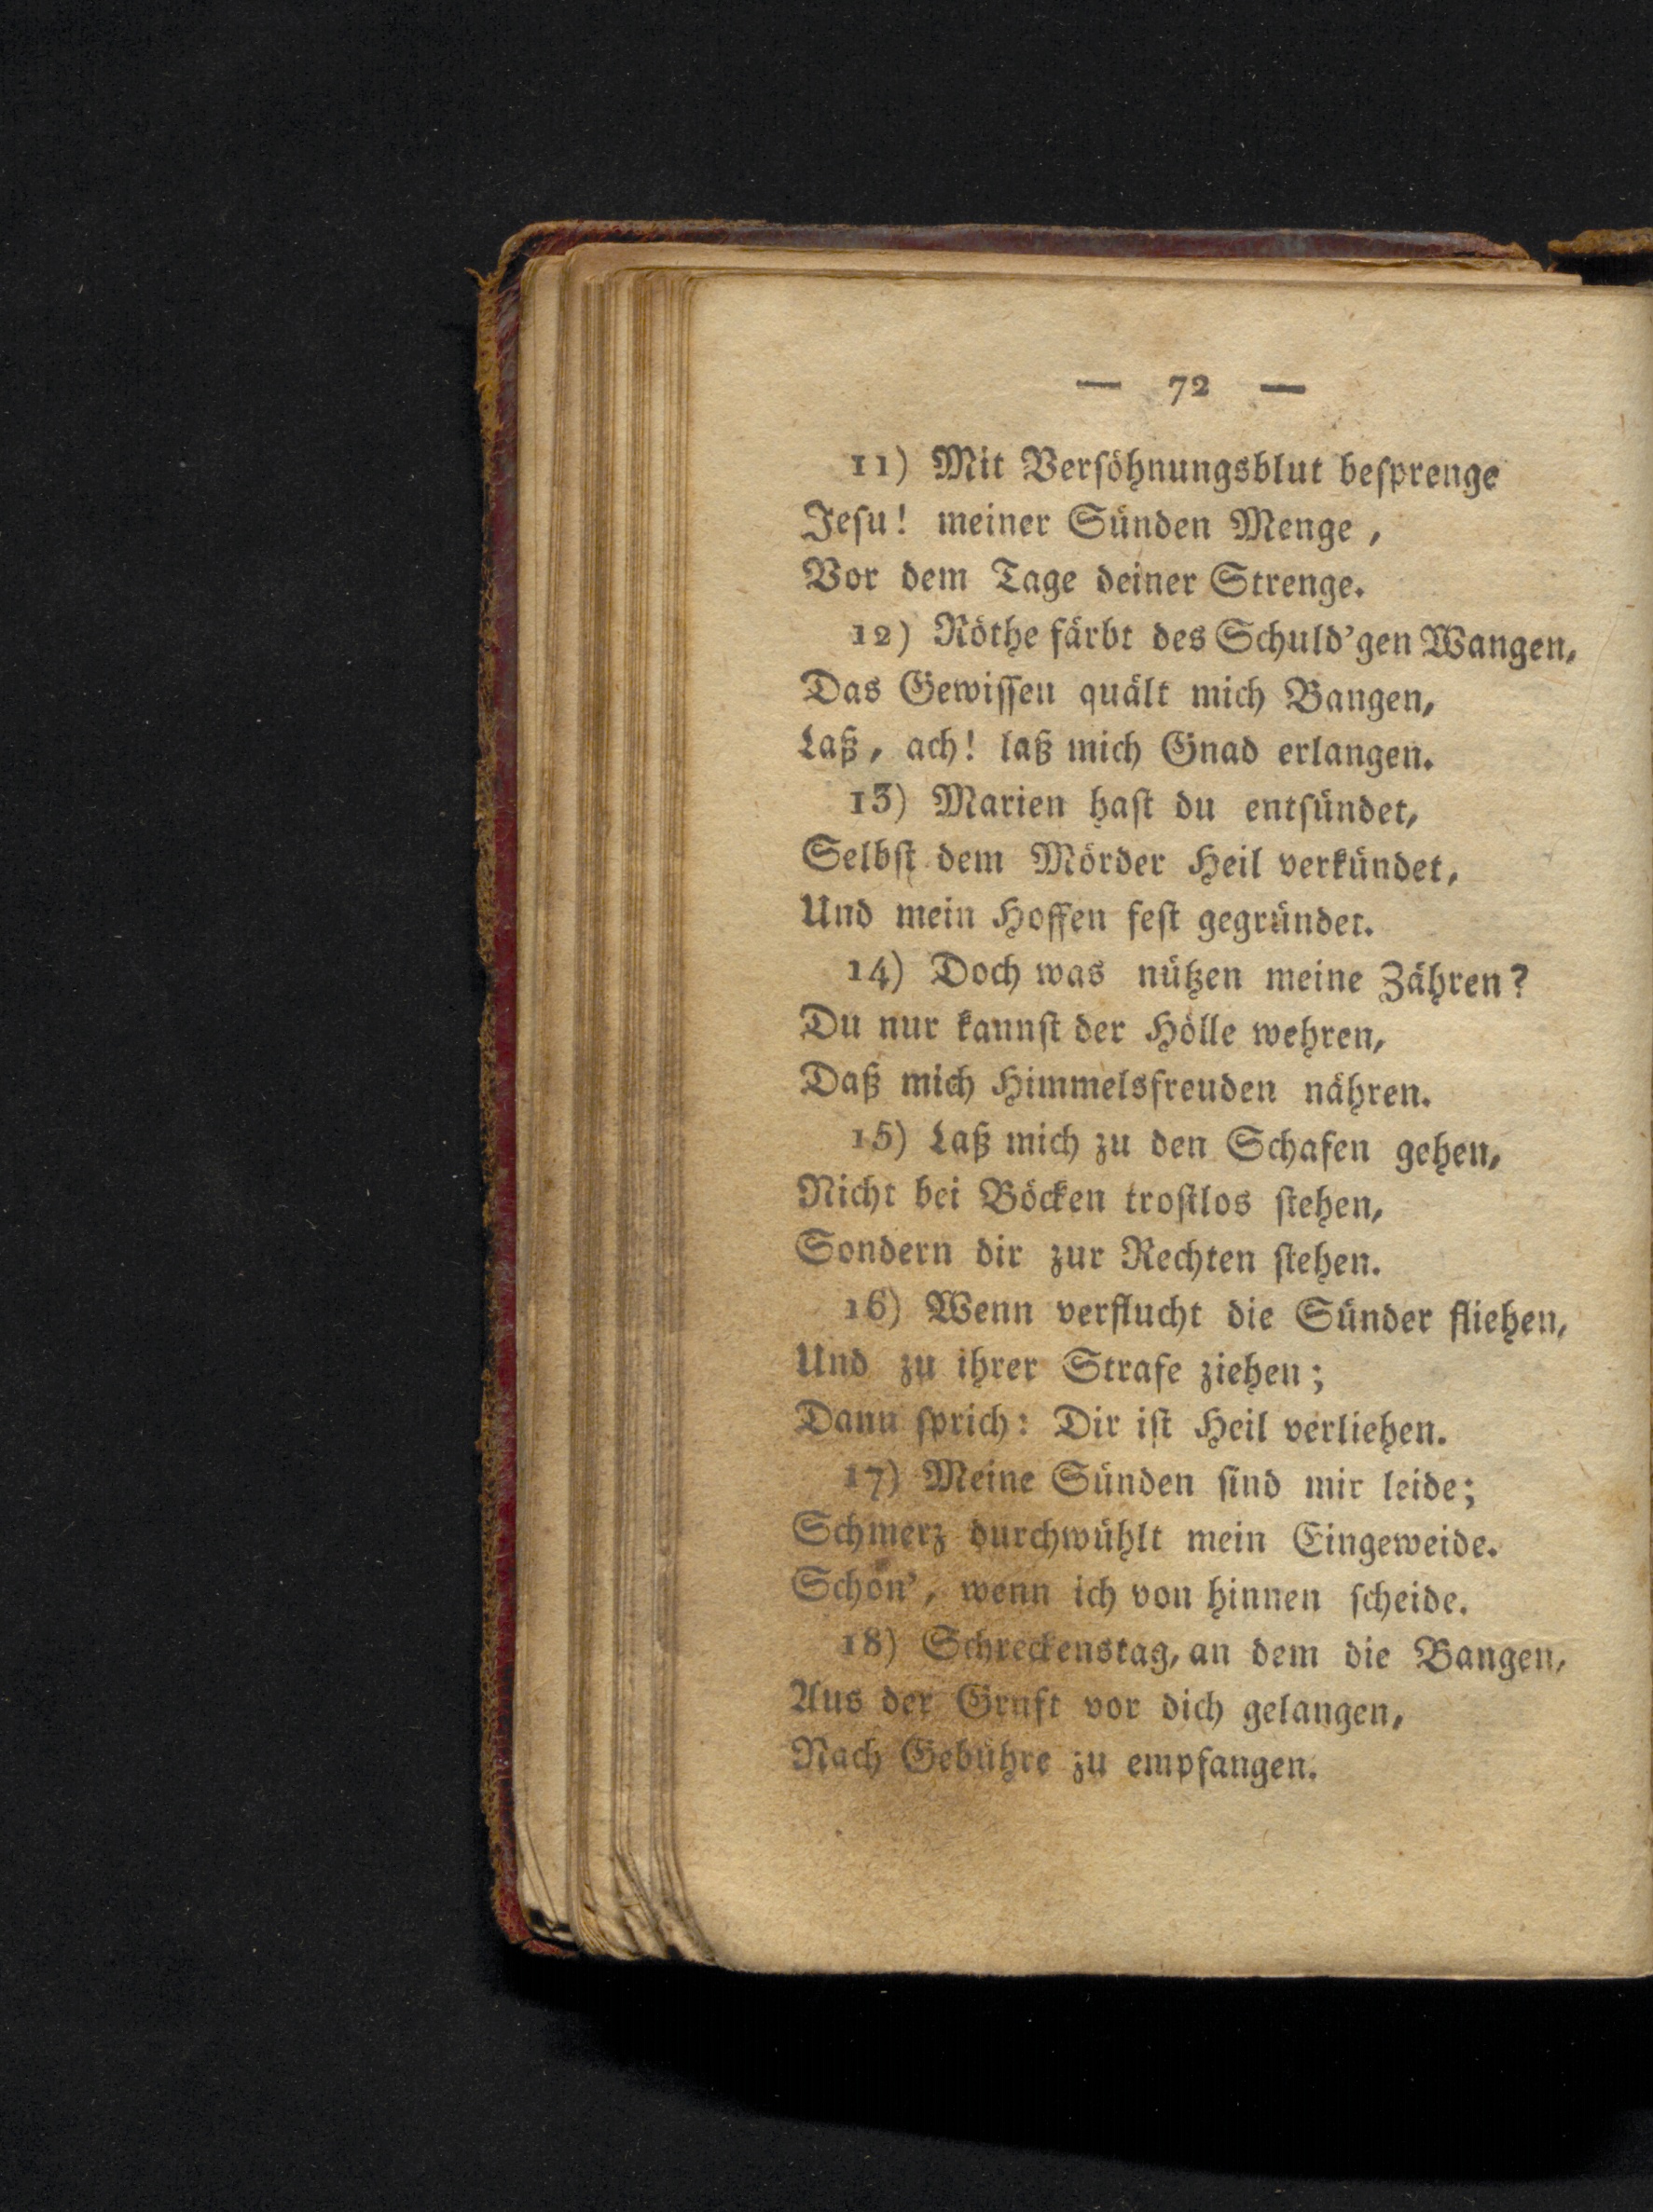 — 72 —
11) Mit Verſöhnungsblut beſprenge
Jeſu! meiner Sünden Menge,
Vor dem Tage deiner Strenge.
12) Röthe färbt des Schuld'gen Wangen,
Das Gewiſſen quält mich Bangen,
Laß, ach! laß mich Gnad erlangen.
13) Marien haſt du entſündet,
Selbſt dem Mörder Heil verkündet,
Und mein Hoffen feſt gegründet.
14) Doch was nützen meine Zähren?
Du nur kannſt der Hölle wehren,
Daß mich Himmelsfreuden nähren.
15) Laß mich zu den Schafen gehen,
Nicht bei Böcken troſtlos ſtehen,
Sondern dir zur Rechten ſtehen.
16) Wenn verflucht die Sünder fliehen,
Und zu ihrer Strafe ziehen;
Dann ſprich: Dir iſt Heil verliehen.
17) Meine Sünden ſind mir leide;
Schmerz durchwühlt mein Eingeweide.
Schön', wenn ich von hinnen ſcheide.
18) Schreckenstag, an dem die Bangen,
Aus der Gruft vor dich gelangen,
Nach Gebühre zu empfangen.